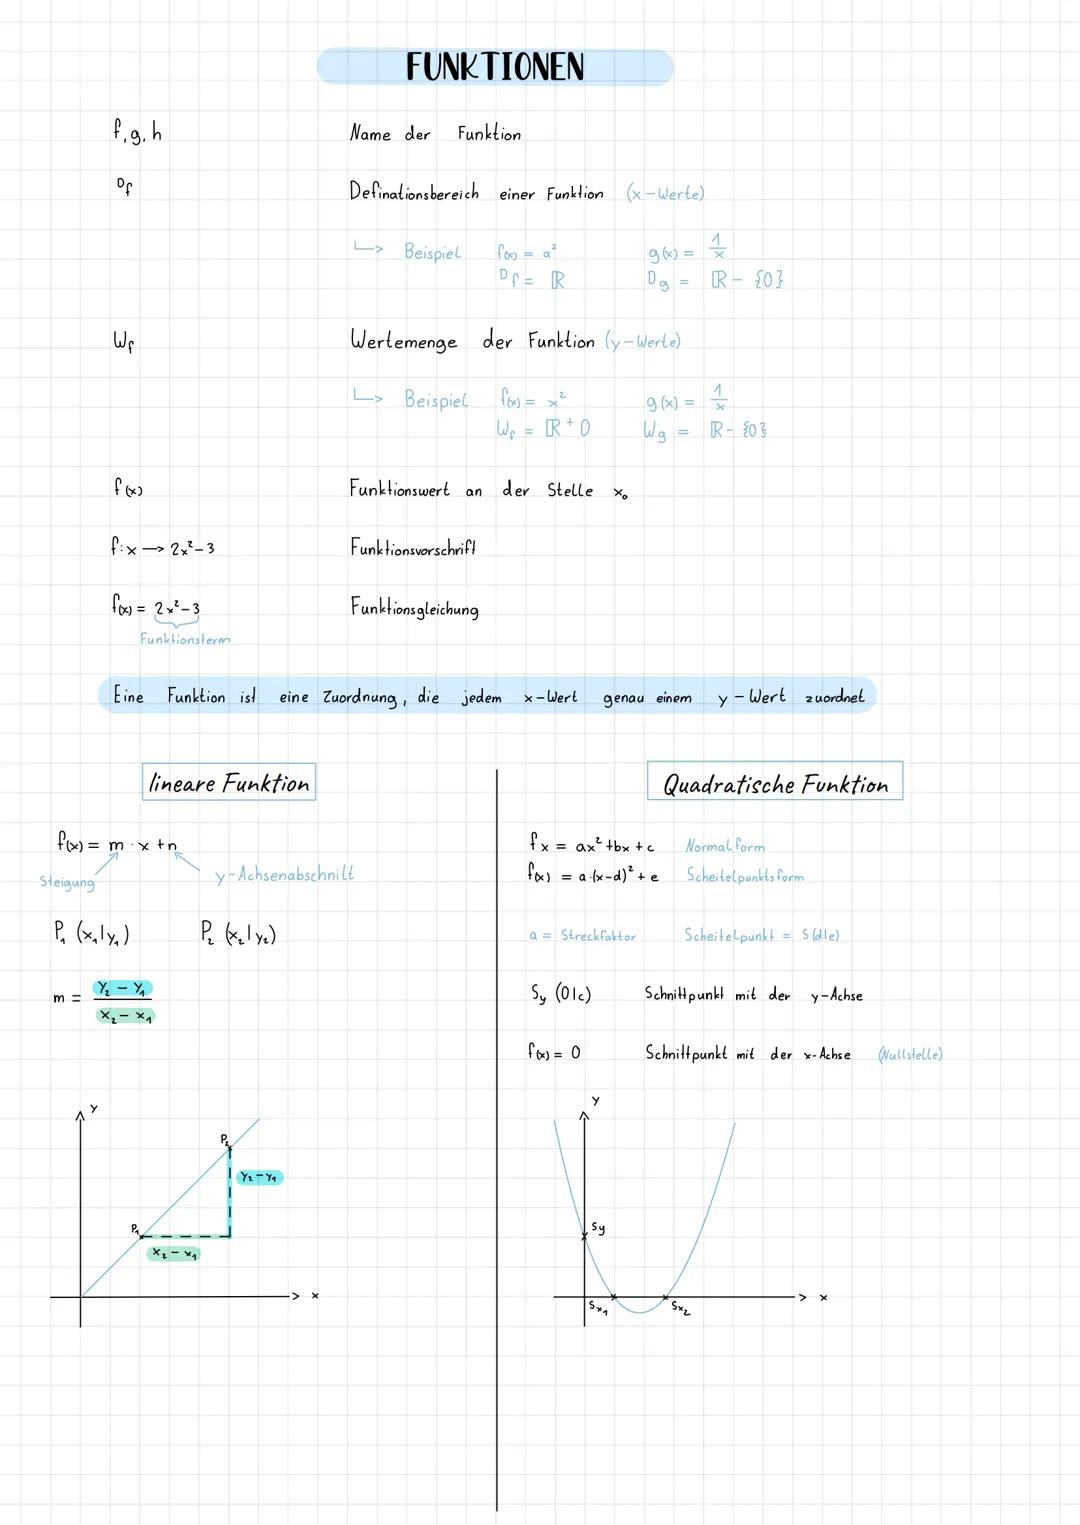 FUNKTIONEN
f, g, h Name der Funktion
Df Definationsbereich einer Funktion (x-Werte)
↳ Beispiel f(x) = a² g(x) = 1/x
Df = ℝ Dg = ℝ - {0}
Wf Wertemenge der Funktion (y-Werte)
↳ Beispiel f(x) = x² g(x) = 1/x
Wf = ℝ⁺0 Wg = ℝ - {0}
f(x) Funktionswert an der Stelle x₀
f: x → 2x² - 3 Funktionsvorschrift
f(x) = 2x² - 3 Funktionsgleichung
Funktionsterm
Eine Funktion ist eine Zuordnung, die jedem x-Wert genau einem y-Wert zuordnet
lineare Funktion
f(x) = m · x + n
Steigung y-Achsenabschnitt
P₁ (x₁|y₁) P₂ (x₂|y₂)
m = y₂ - y₁
x₂ - x₁
y
P₂
y₂ - y₁
P₁
x₂ - x₁
x
Quadratische Funktion
fx = ax² + bx + c Normalform
f(x) = a·(x-d)² + e Scheitelpunktsform
a = Streckfaktor Scheitelpunkt = S(d|e)
Sy (0|c) Schnittpunkt mit der y-Achse
f(x) = 0 Schnittpunkt mit der x-Achse (Nullstelle)
y
Sy
Sx₁ Sx₂
x